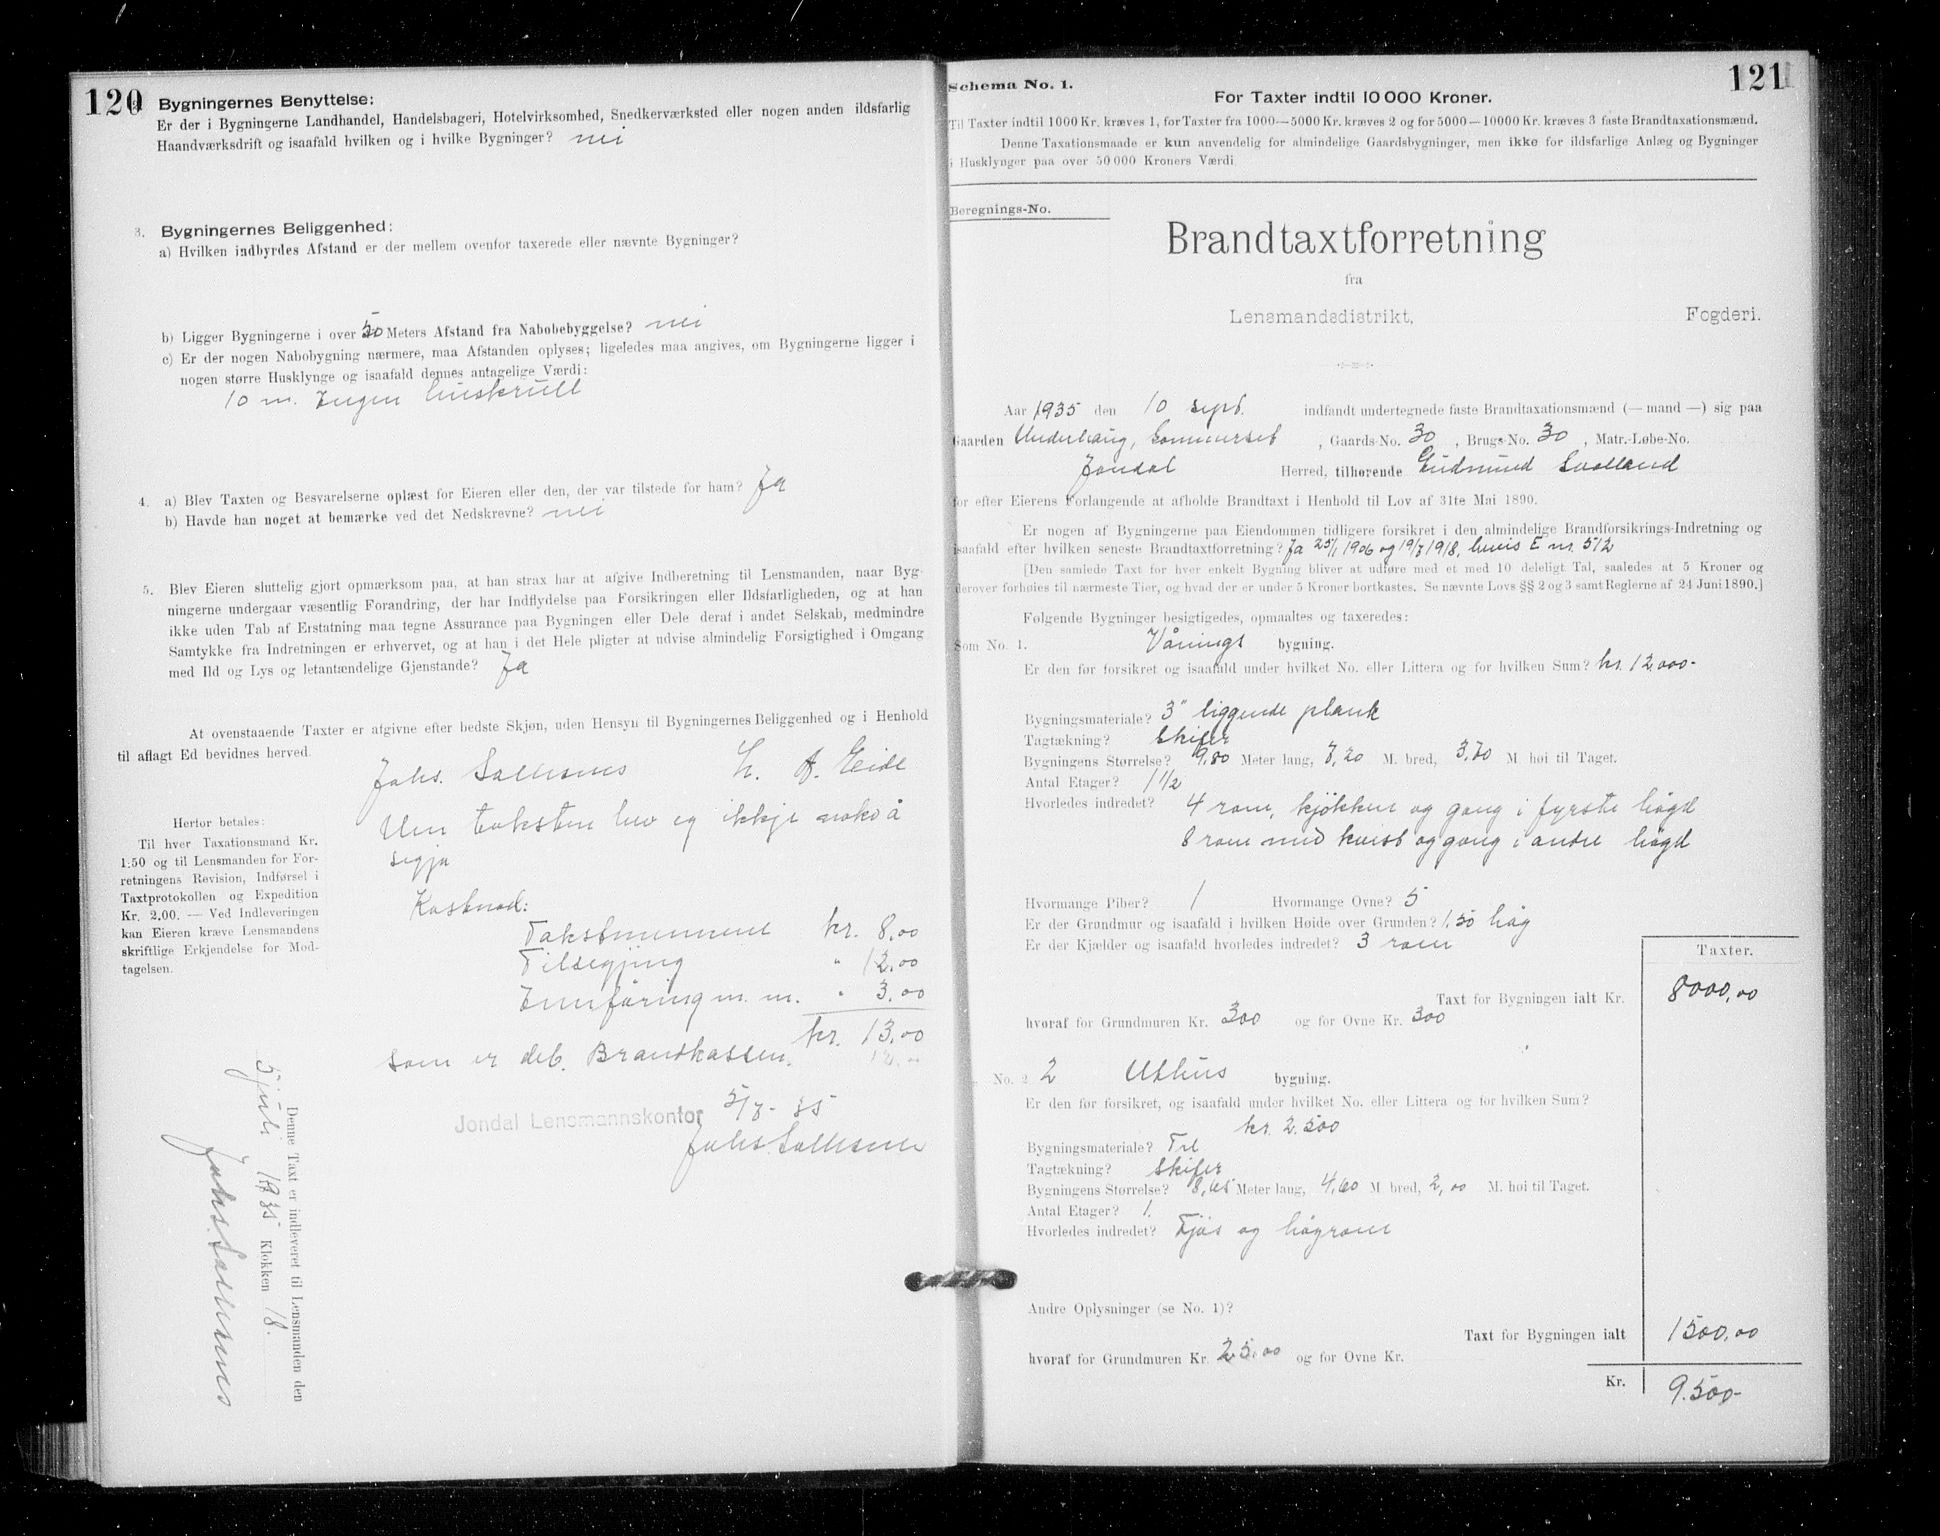 120
2. Bygningernes Benyttelse:
Er der i Bygningerne Landhandel, Handelsbageri, Hotelvirksomhed, Snedkerværksted eller nogen anden ildsfarlig
Haandværksdrift og isaafald hvilken og i hvilke Bygninger? nei
3. Bygningernes Beliggenhed:
a) Hvilken indbyrdes Afstand er der mellem ovenfor taxerede eller nævnte Bygninger?
b) Ligger Bygningerne i over 50 Meters Afstand fra Nabobebyggelse? nei
c) Er der nogen Nabobygning nærmere, maa Afstanden oplyses; ligeledes maa angives, om Bygningerne ligger i
nogen større Husklynge og isaafald dennes antagelige Værdi:
10 m. Ingen
4. a) Blev Taxten og Besvarelserne oplæst for Eieren eller den, der var tilstede for ham? Ja
b) Havde han noget at bemærke ved det Nedskrevne? nei
5. Blev Eieren sluttelig gjort opmærksom paa, at han strax har at afgive Indberetning til Lensmanden, naar Byg-
ningerne undergaar væsentlig Forandring, der har Indflydelse paa Forsikringen eller Ildsfarligheden, og at han
ikke uden Tab af Erstatning maa tegne Assurance paa Bygningen eller Dele deraf i andet Selskab, medmindre
Samtykke fra Indretningen er erhvervet, og at han i det Hele pligter at udvise almindelig Forsigtighed i Omgang
med Ild og Lys og letantændelige Gjenstande? Ja
At ovenstaaende Taxter er afgivne efter bedste Skjøn, uden Hensyn til Bygningernes Beliggenhed og i Henhold
til aflagt Ed bevidnes herved.
Johs. Sallesnes   A. Eide
Um taksten hev eg ikkje noko å
segja
Herfor betales:
Til hver Taxationsmand Kr.
1:50 og til Lensmanden for For-
retningens Revision, Indførsel i
Taxtprotokollen og Expedition
Kr. 2.00. — Ved Indleveringen
kan Eieren kræve Lensmandens
skriftlige Erkjendelse for Mod-
tagelsen.
Kostnad:
Takstmennene kr. 8,00
Tilsegjing " 12,00
Innføring m. m. " 3,00
kr. 13,00
som er deb. Brandkassen.
Jondal Lensmannskontor 5/7-35
Johs. Sallesnes
Denne Taxt er indleveret til Lensmanden den
5 juli 1935 Klokken 18.
Johs. Sallesnes
121
Schema No. 1.
For Taxter indtil 10 000 Kroner.
Til Taxter indtil 1000 Kr. kræves 1, for Taxter fra 1000—5000 Kr. kræves 2 og for 5000—10000 Kr. kræves 3 faste Brandtaxationsmænd.
Denne Taxationsmaade er kun anvendelig for almindelige Gaardsbygninger, men ikke for ildsfarlige Anlæg og Bygninger
i Husklynger paa over 50 000 Kroners Værdi
Beregnings-No.
Brandtaxtforretning
fra
Lensmandsdistrikt, Fogderi.
Aar 1935 den 10 sept. indfandt undertegnede faste Brandtaxationsmænd (— mand —) sig paa
Gaarden Underhaug, Sommerset, Gaards-No. 30, Brugs-No. 30, Matr.-Løbe-No.
Jondal Herred, tilhørende Gudmund
for efter Eierens Forlangende at afholde Brandtaxt i Henhold til Lov af 31te Mai 1890.
Er nogen af Bygningerne paa Eiendommen tidligere forsikret i den almindelige Brandforsikrings-Indretning og
isaafald efter hvilken seneste Brandtaxtforretning? Ja 25/1 1906 og 19/7 1918, E nr. 512
[Den samlede Taxt for hver enkelt Bygning bliver at udføre med et med 10 deleligt Tal, saaledes at 5 Kroner og
derover forhøies til nærmeste Tier, og hvad der er under 5 Kroner bortkastes. Se nævnte Lovs §§ 2 og 3 samt Reglerne af 24 Juni 1890.]
Følgende Bygninger besigtigedes, opmaaltes og taxeredes:
Som No. 1. Vånings bygning.
Er den før forsikret og isaafald under hvilket No. eller Littera og for hvilken Sum? kr. 12.000-
Bygningsmateriale? 3" liggende plank
Tagtækning? Skifer
Bygningens Størrelse? 9,80 Meter lang, 7,20 M. bred, 3,70 M. høi til Taget.
Antal Etager? 1 1/2
Hvorledes indredet? 4 rom, kjøkken og gang i fyrste høgd
8 rom med kvist og gang i andre høgd
Hvormange Piber? 1 Hvormange Ovne? 5
Er der Grundmur og isaafald i hvilken Høide over Grunden? 1,50 høg
Er der Kjælder og isaafald hvorledes indredet? 3 rom
Taxter.
Taxt for Bygningen ialt Kr. 8000,00
hvoraf for Grundmuren Kr. 300 og for Ovne Kr. 300
No. 2 2 Uthus bygning.
Er den før forsikret, og isaafald under hvilket No. eller Littera og for hvilken Sum?
kr. 2.500
Bygningsmateriale? Til
Tagtækning? Skifer
Bygningens Størrelse? 8,65 Meter lang, 4,60 M bred, 2,00 M. høi til Taget.
Antal Etager? 1.
Hvorledes indredet? Fjøs og høyrom
Andre Oplysninger (se No. 1)?
Taxt for Bygningen ialt 1500,00
hvoraf for Grundmuren Kr. 25,00 og for Ovne Kr.
Kr. 9.500-